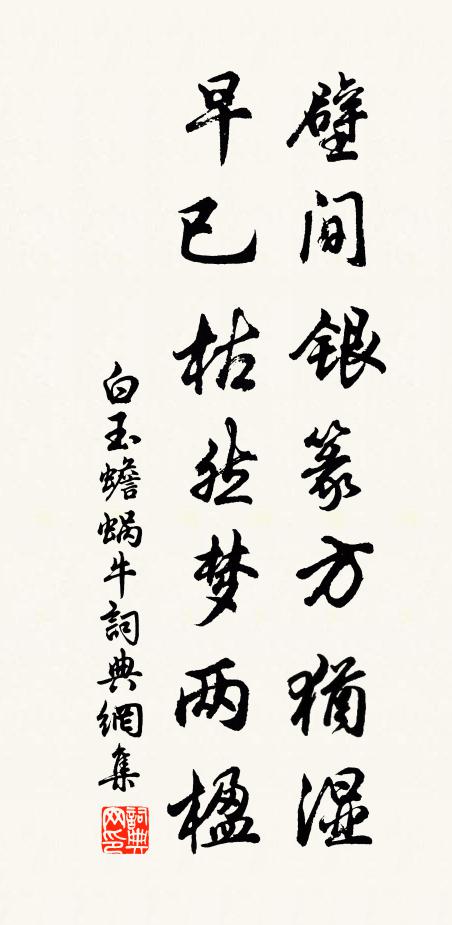 壁间银篆方犹湿
早已枯然梦两楹
白玉蟾蜗牛詞典網集
詞典网印